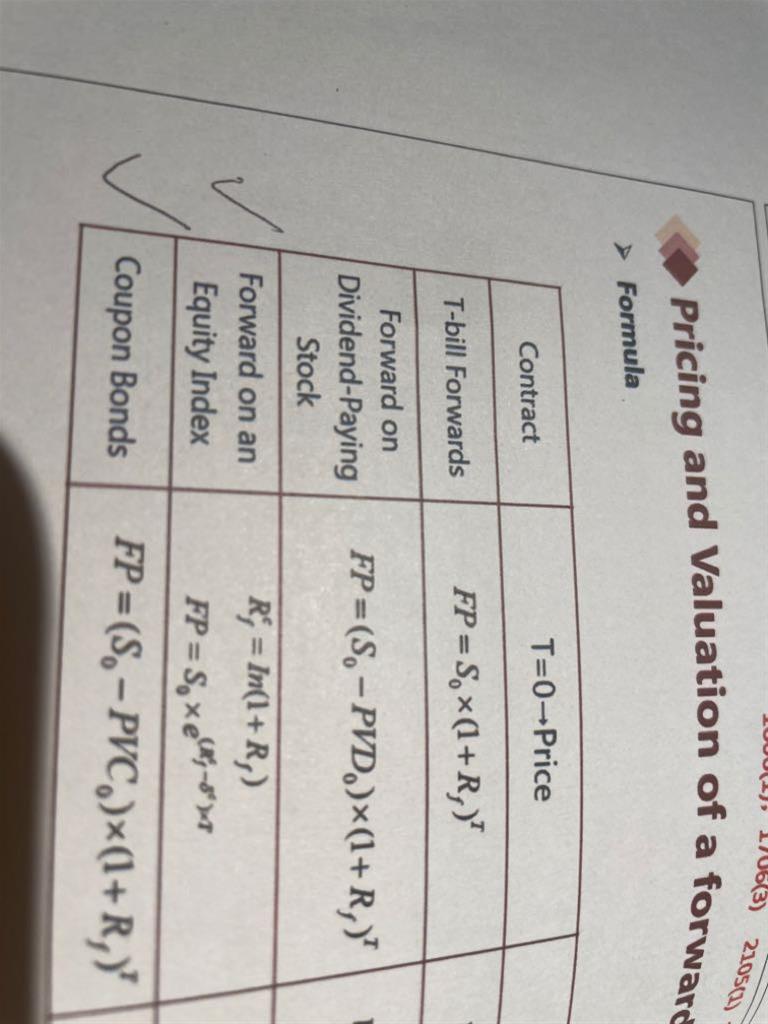 1706(3) 2105(1)
Pricing and Valuation of a forward
➢ Formula
Contract
T=0→Price
T-bill Forwards
FP = S₀ × (1 + R_f)^T
Forward on
Dividend-Paying
Stock
FP = (S₀ − PVD₀) × (1 + R_f)^T
Forward on an
Equity Index
R_f^c = In(1 + R_f)
FP = S₀ × e^((R_f^c − δ^c)×T)
Coupon Bonds
FP = (S₀ − PVC₀) × (1 + R_f)^T